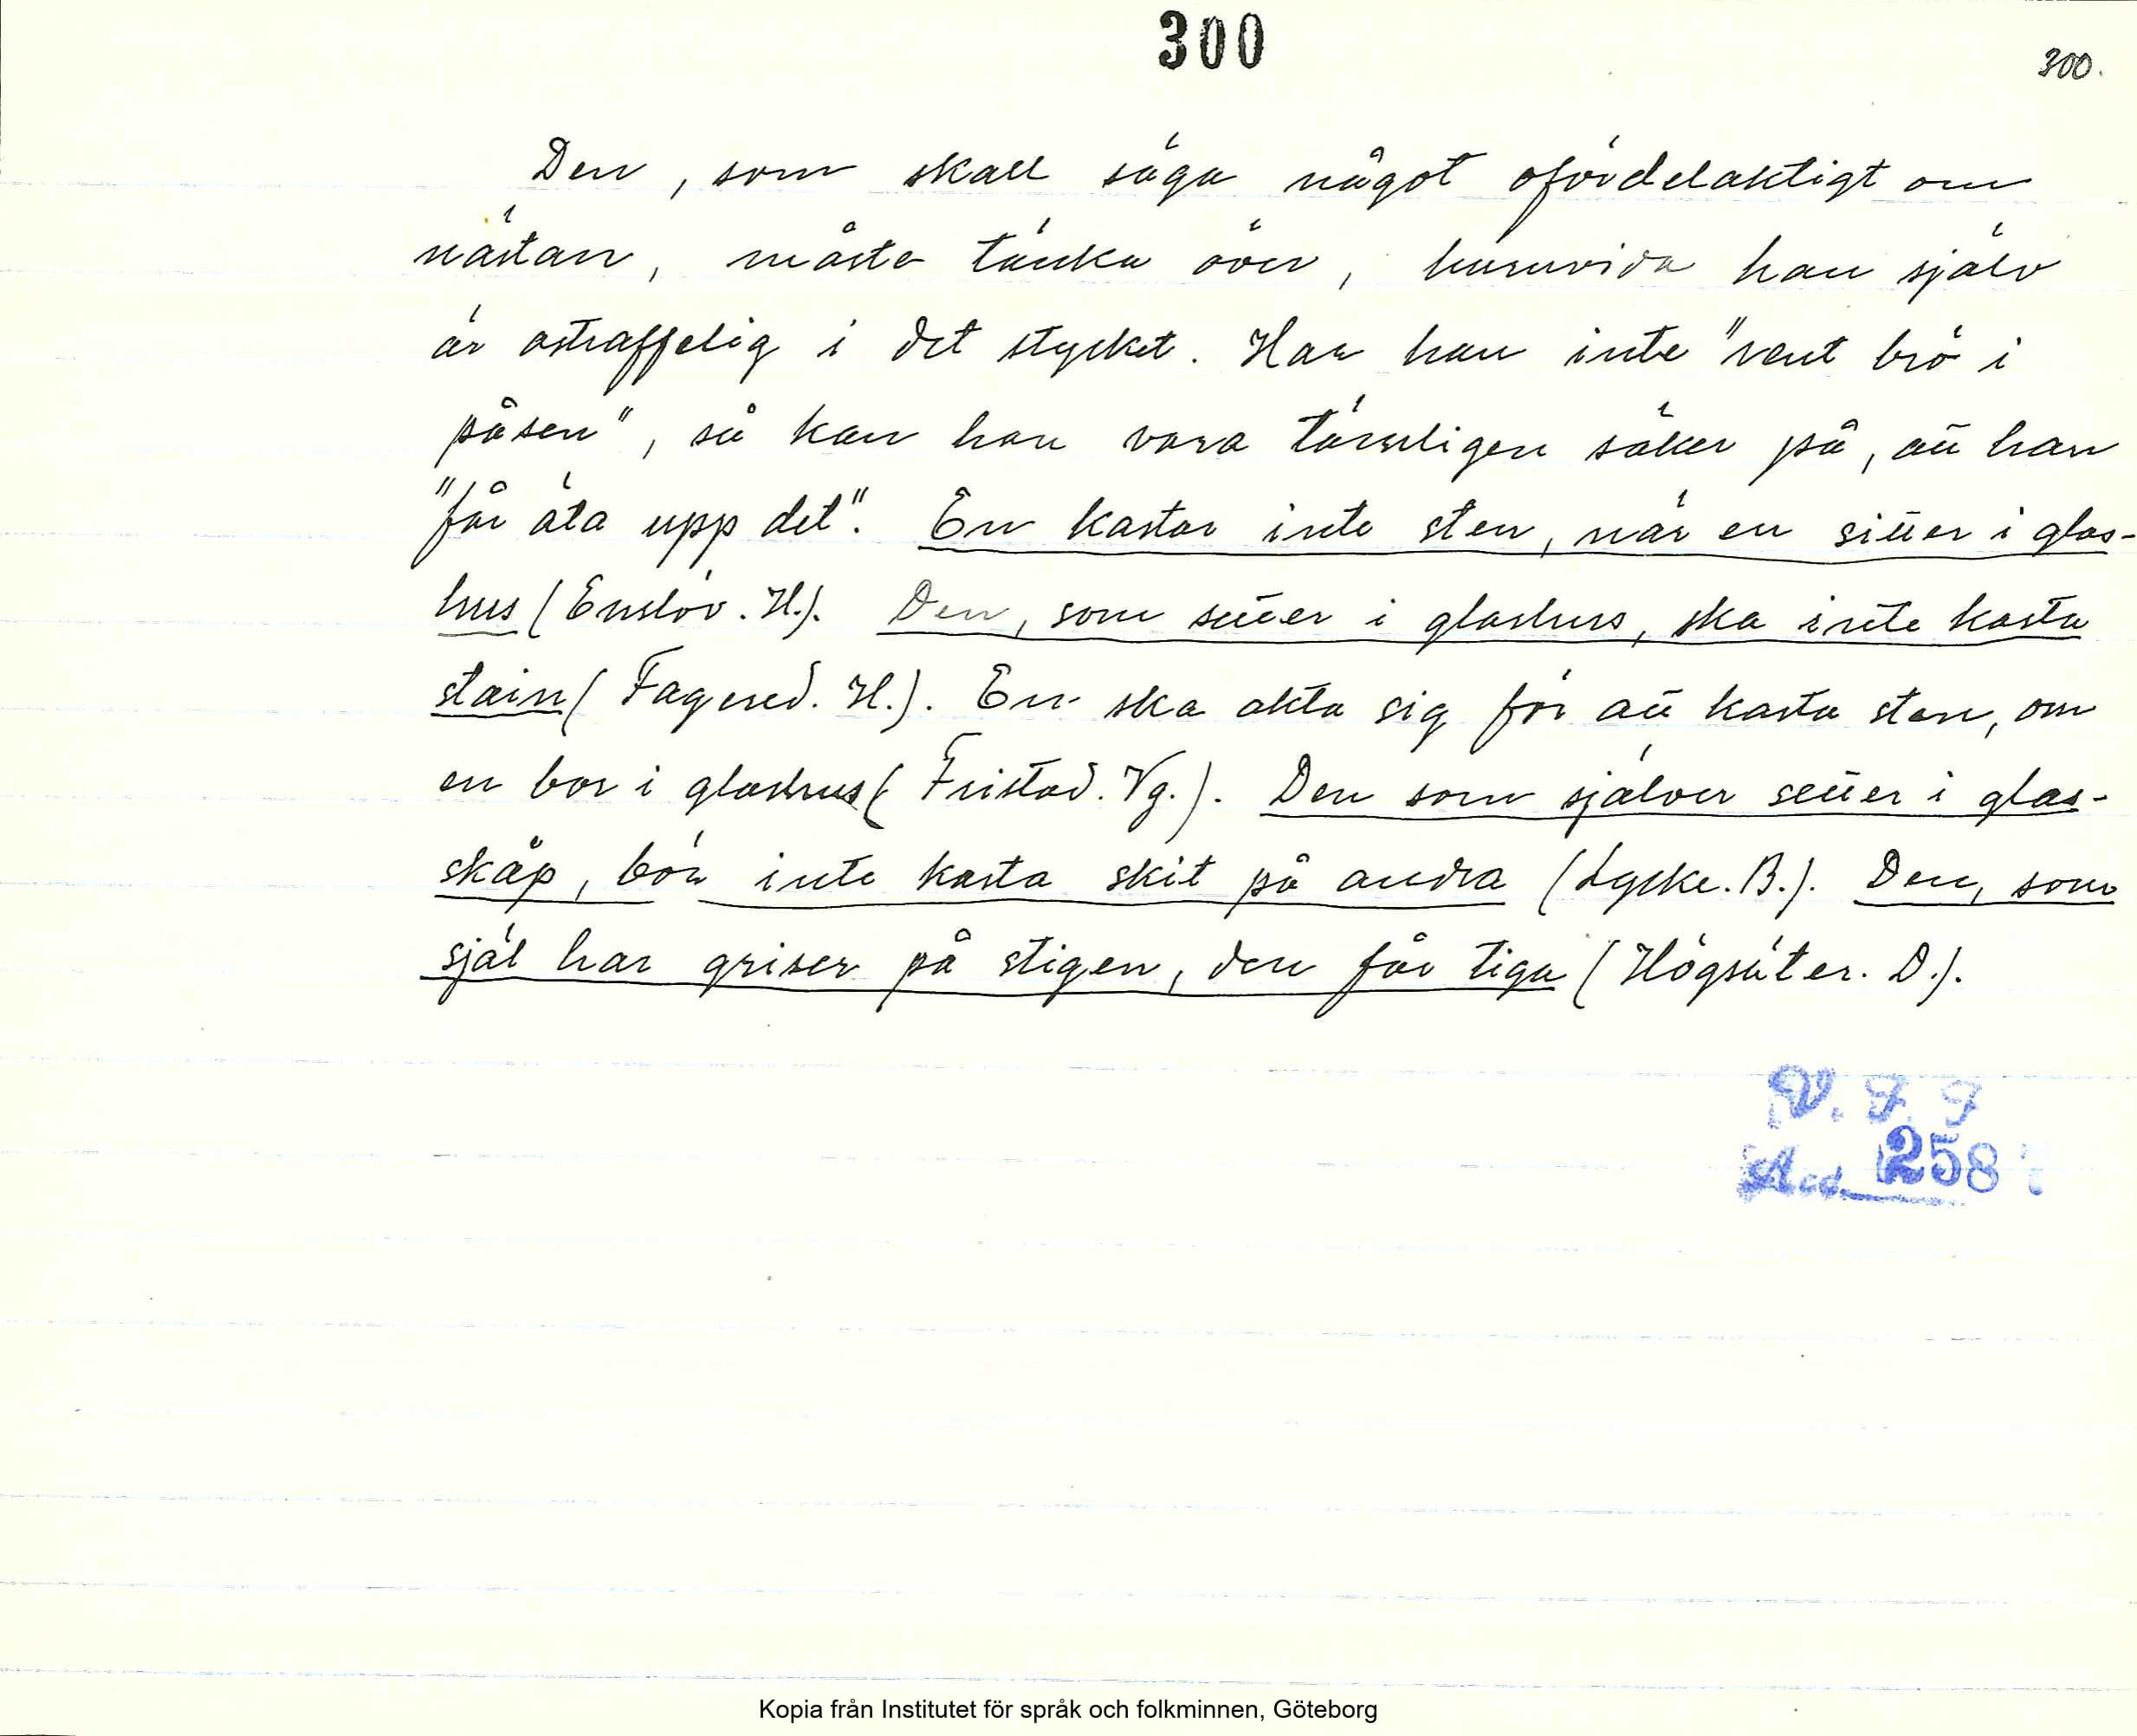 300
300.
Den, som skall säga något ofördelaktigt om
nästan, måste tänka över, huruvida han själv
är ostraffelig i det stycket. Har han inte "rent brö i
påsen", så kan han vara tämligen säker på, att han
"får äta upp det". En kastar inte sten, när en sitter i glas-
hus (Enslöv. H.). Den, som setter i glashus, ska inte kasta
stain (Fagered. H.). En ska akta sig för att kasta sten, om
en bor i glashus (Fristad. Vg.). Den som själver setter i glas-
skåp, bör inte kasta skit på andra (Lycke. B.). Den, som
själ har griser på stigen, den får tiga (Högsäter. D.).
V. F. F
Acc. 258
Kopia från Institutet för språk och folkminnen, Göteborg